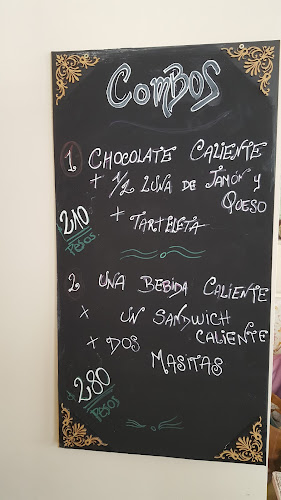 Combos
1 CHOCOLATE CALIENTE
+ 1/2 LUNA DE JAMÓN Y
QUESO
+ TARTELETA
210
Pesos
2 UNA BEBIDA CALIENTE
x UN SANDWICH
CALIENTE
+ DOS
MASITAS
280
Pesos